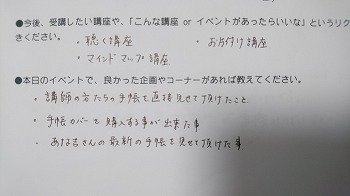 ●今後、受講したい講座や、「こんな講座 or イベントがあったらいいな」というリク
きください。
・聴く講座 ・お片付け講座
・マインドマップ講座
●本日のイベントで、良かった企画やコーナーがあれば教えてください。
・講師の方たちの手帳を直接見せて頂けたこと
・手帳カバーを購入する事が出来た事
・あな吉さんの最新の手帳を見せて頂けた事